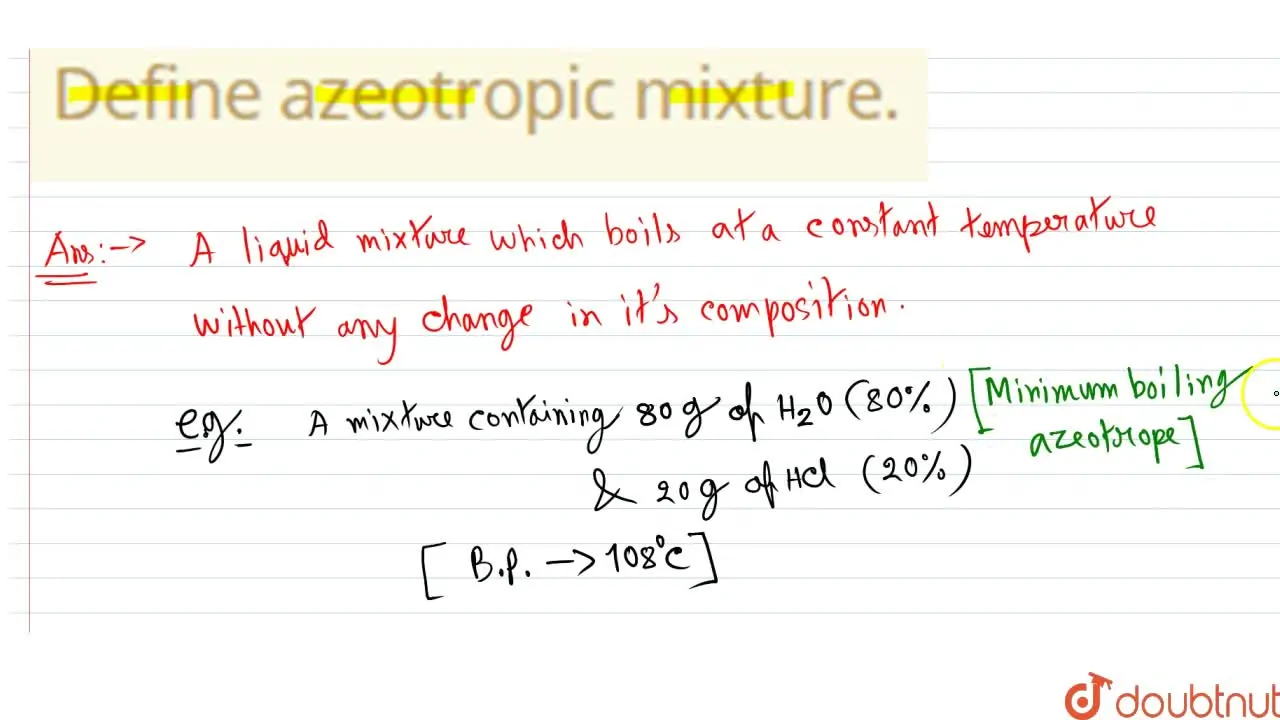 Define azeotropic mixture.
Ans:→ A liquid mixture which boils at a constant temperature
without any change in it's composition.
e.g. A mixture containing 80g of H₂O (80%) [Minimum boiling
azeotrope]
& 20g of HCl (20%)
[B.P. → 108°C]
doubtnut